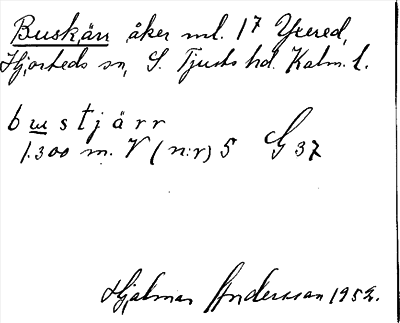 Buskärr åker ml. 1⁷ Yxered,
Hjorteds sn, S. Tjusts hd. Kalm. l.
b u s t j ä r r
1.300 m. V (n:r) 5 G 37
Hjalmar Andersson 1952.